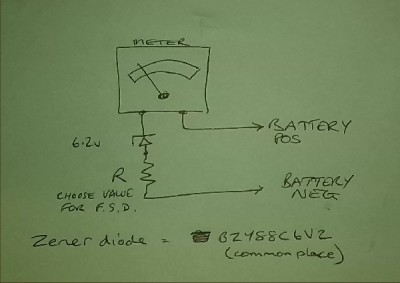 METER
6.2v
BATTERY
POS
R
CHOOSE VALUE
FOR F.S.D.
BATTERY
NEG
Zener diode = BZY88C6V2
(common place)